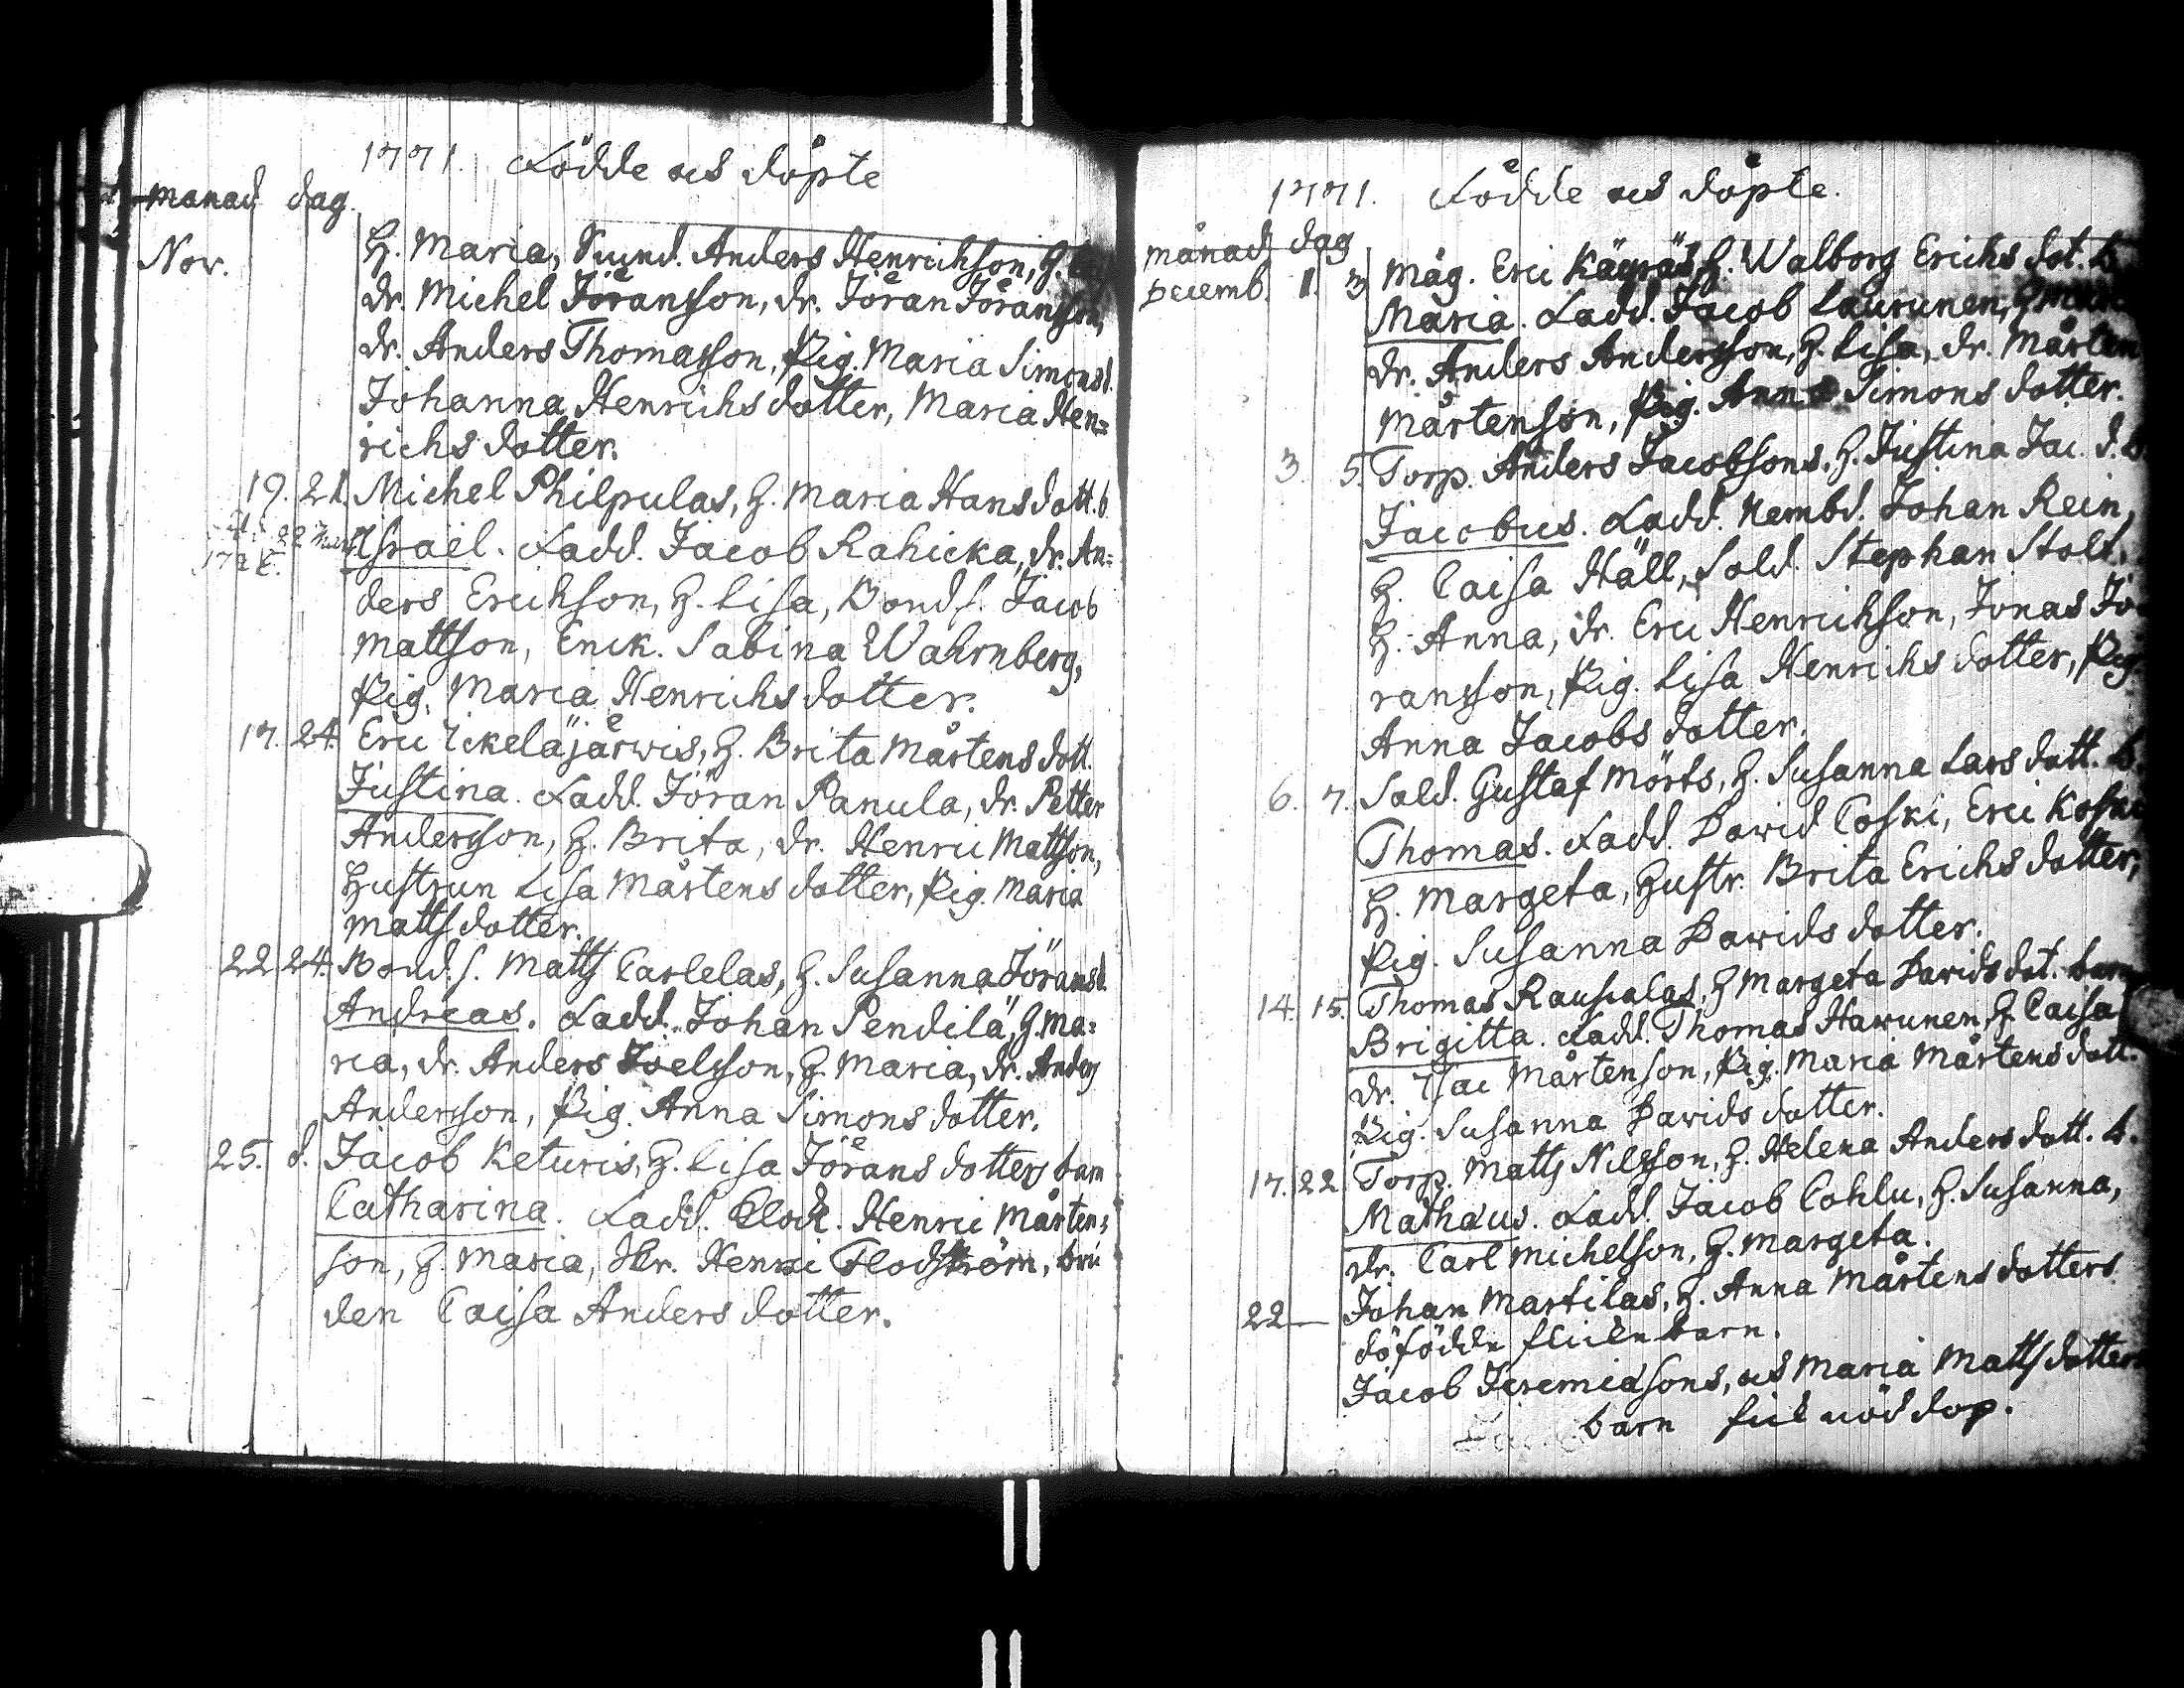 1771. Födde och döpte
månad dag
Nov.
H. Maria, Sund. Anders Henrichson, H.
dr. Michel Jöransson, dr. Jöran Jöransson,
dr. Anders Thomasson, Pig. Maria Simonsd.
Johanna Henrichsdotter, Maria Hen=
richs dotter.
19. 21. Michel Philpulas, H. Maria Hansdott. b
22
Israël. Fadd. Jacob Rahicka, dr. An=
ders Erichson, H. Lisa, Bonds. Jacob
Mattson, Enck. Sabina Wahrnberg,
Pig. Maria Henrichsdotter.
17. 24. Eric Ickeläjärwis, H. Brita Mårtensdott.
Justina. Fadd. Jöran Panula, dr. Petter
Andersson, H. Brita, dr. Henric Mattson,
Hustrun Lisa Mårtensdotter, Pig. Maria
Matts dotter.
22 24. Bond. s. Matts Carlelas, H. Susanna Jöransd.
Andreas. Fadd. Johan Pendilä, H. Ma=
ria, dr. Anders Joelsson, H. Maria, dr. Anders
Andersson, Pig. Anna Simonsdotter.
25. d. Jacob Keturis, H. Lisa Jöransdotters barn
Catharina. Fadd. Clock. Henric Mårten=
son, H. Maria, Hr. Henric Flodström, bru
den Caisa Andersdotter.
1771. Födde och döpte.
månad dag
Decemb. 1. 3 Måg. Eric Käyräs, H. Walborg Erichs dot. b
Maria. Fadd. Jacob Laurunen,
dr. Anders Andersson, H. Lisa, dr. Mårten
Mårtenson, Pig. Anna Simons dotter.
3. 5. Torp. Anders Jacobsons, H. Justina Jac. d. b
Jacobus. Fadd. Nembd. Johan Rein,
H. Caisa Häll, Sold. Stephan Stolt,
H. Anna, dr. Eric Henrichson, Jonas Jö
ransson, Pig. Lisa Henrichsdotter, Pig
Anna Jacobs dotter.
6. 7. Sold. Gustaf Mörts, H. Susanna Larsdott. b.
Thomas. Fadd. Dawid Coski, Eric Koski
H. Margeta, Hustr. Brita Erichsdotter,
Pig. Susanna Dawidsdotter.
14. 15. Thomas Rauscalas, H Margeta Dawidsdot. barn
Brigitta. Fadd. Thomas Harunen, H. Caisa
dr. Isac Mårtenson, Pig. Maria Mårtensdott.
Pig. Susanna Dawidsdotter.
17. 22. Torp. Matts Nilsson, H. Helena Andersdott. b.
Mathæus. Fadd. Jacob Cohlu, H. Susanna,
dr. Carl Michelson, H. Margeta.
22 — Johan Martilas, H. Anna Mårtensdotters
döfödde flicke barn.
Jacob Jeremiasons, och Maria Mattsdotters
barn fick nöddop.